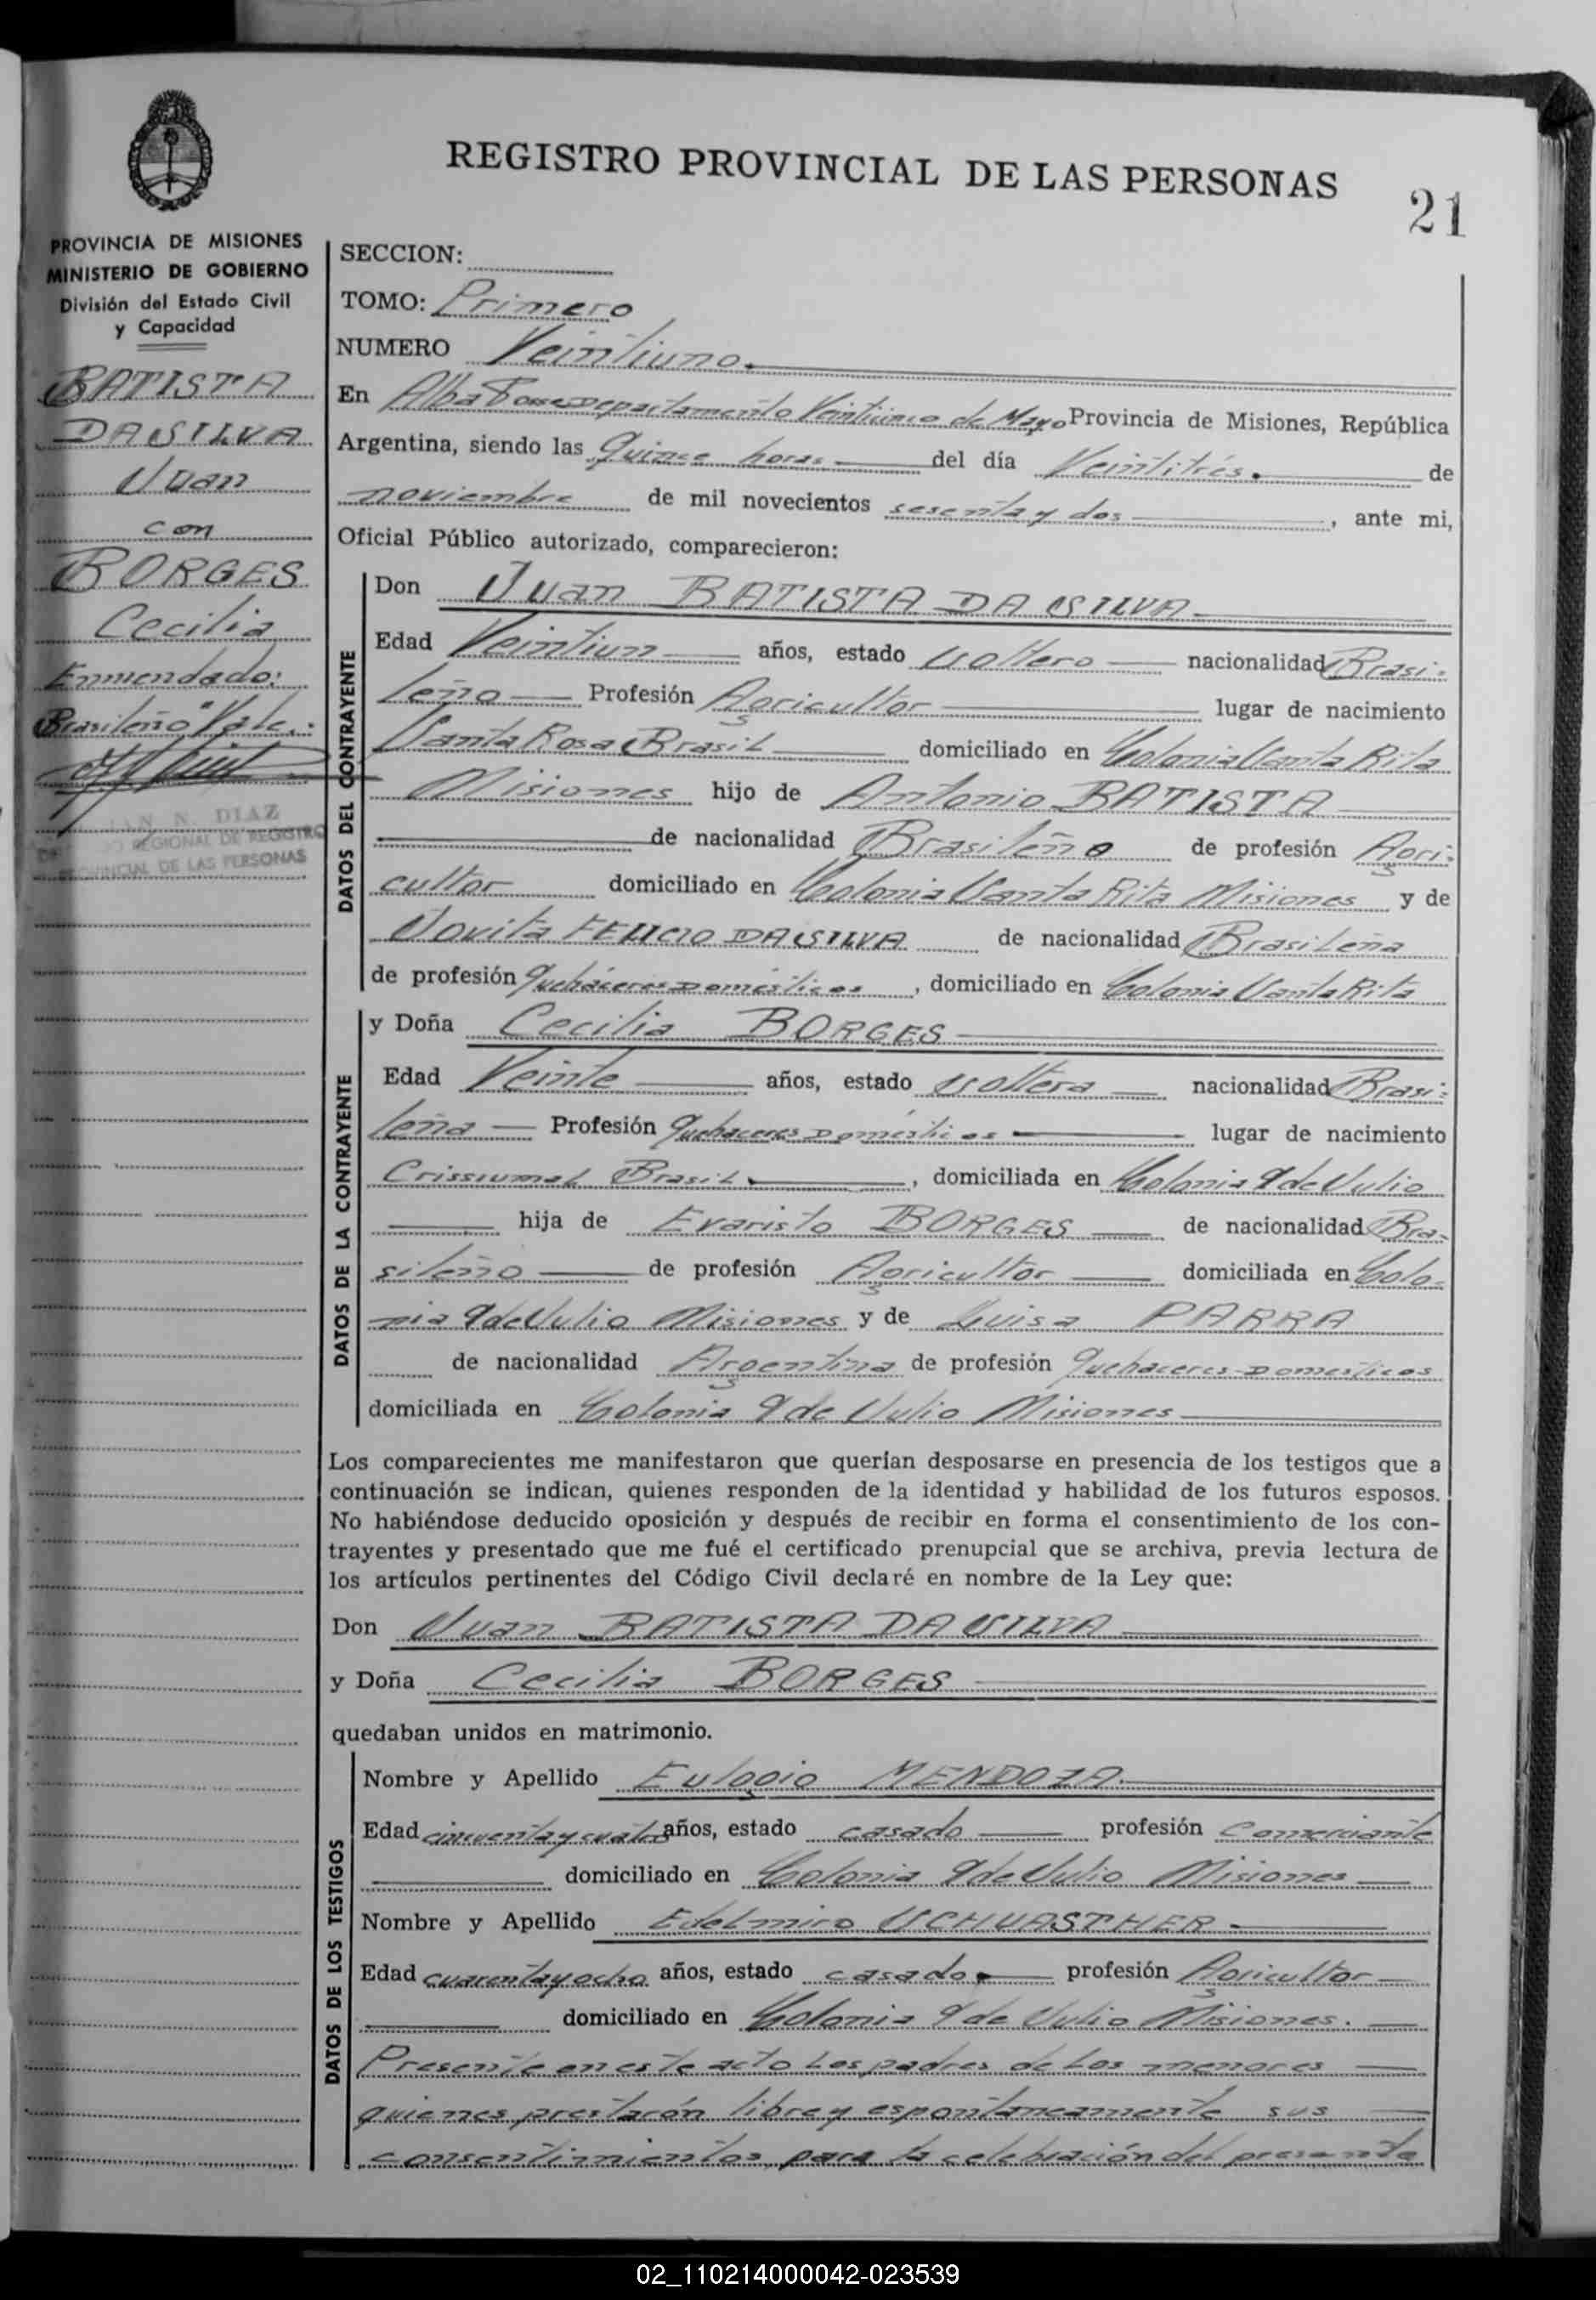 REGISTRO PROVINCIAL DE LAS PERSONAS
21
PROVINCIA DE MISIONES
MINISTERIO DE GOBIERNO
División del Estado Civil
y Capacidad
BATISTA
DA SILVA
Juan
con
BORGES
Cecilia
Enmendado:
Brasileño "Vale.:
N. DIAZ
REGIONAL DE REGISTRO
PROVINCIAL DE LAS PERSONAS
SECCION:
TOMO: Primero
NUMERO Veintiuno.
En Alba Posse Departamento Veinticinco de Mayo Provincia de Misiones, República
Argentina, siendo las Quince horas del día Veintitrés. de
noviembre de mil novecientos sesenta y dos, ante mi,
Oficial Público autorizado, comparecieron:
DATOS DEL CONTRAYENTE
Don Juan BATISTA DA SILVA
Edad Veintiun años, estado soltero nacionalidad Brasi-
leño Profesión Agricultor lugar de nacimiento
Santa Rosa Brasil domiciliado en Colonia Santa Rita
Misiones hijo de Antonio BATISTA
de nacionalidad Brasileño de profesión Agri-
cultor domiciliado en Colonia Santa Rita Misiones y de
Jovita FELICIO DA SILVA de nacionalidad Brasileña
de profesión Quehaceres Domésticos, domiciliado en Colonia Santa Rita
DATOS DE LA CONTRAYENTE
y Doña Cecilia BORGES
Edad Veinte años, estado soltera nacionalidad Brasi-
leña Profesión Quehaceres Domésticos lugar de nacimiento
Crissiumal Brasil, domiciliada en Colonia 9 de Julio
hija de Evaristo BORGES de nacionalidad Bra-
sileño de profesión Agricultor domiciliada en Colo-
nia 9 de Julio Misiones y de Luisa PARRA
de nacionalidad Argentina de profesión Quehaceres Domésticos
domiciliada en Colonia 9 de Julio Misiones
Los comparecientes me manifestaron que querían desposarse en presencia de los testigos que a
continuación se indican, quienes responden de la identidad y habilidad de los futuros esposos.
No habiéndose deducido oposición y después de recibir en forma el consentimiento de los con-
trayentes y presentado que me fué el certificado prenupcial que se archiva, previa lectura de
los artículos pertinentes del Código Civil declaré en nombre de la Ley que:
Don Juan BATISTA DA SILVA
y Doña Cecilia BORGES
quedaban unidos en matrimonio.
DATOS DE LOS TESTIGOS
Nombre y Apellido Eulogio MENDOZA.
Edad cincuenta y cuatro años, estado casado profesión Comerciante
domiciliado en Colonia 9 de Julio Misiones
Nombre y Apellido Edelmiro SCHUASTHER
Edad cuarenta y ocho años, estado casado profesión Agricultor
domiciliado en Colonia 9 de Julio Misiones.
Presente en este acto Los padres de Los menores
quienes prestarón libre y espontaneamente sus
consentimientos para la celebración del presente
02_110214000042-023539